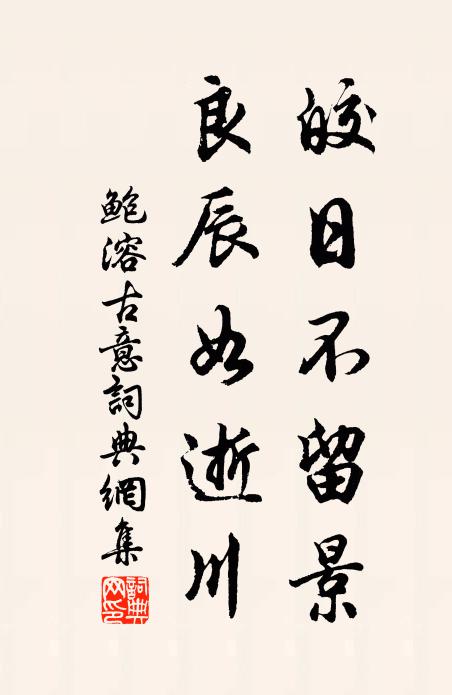 皎日不留景
良辰如逝川
鮑溶古意詞典網集
詞典網印